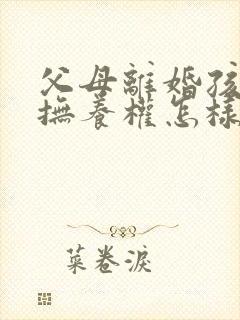 父母離婚孩
撫養權怎樣
菜卷淚